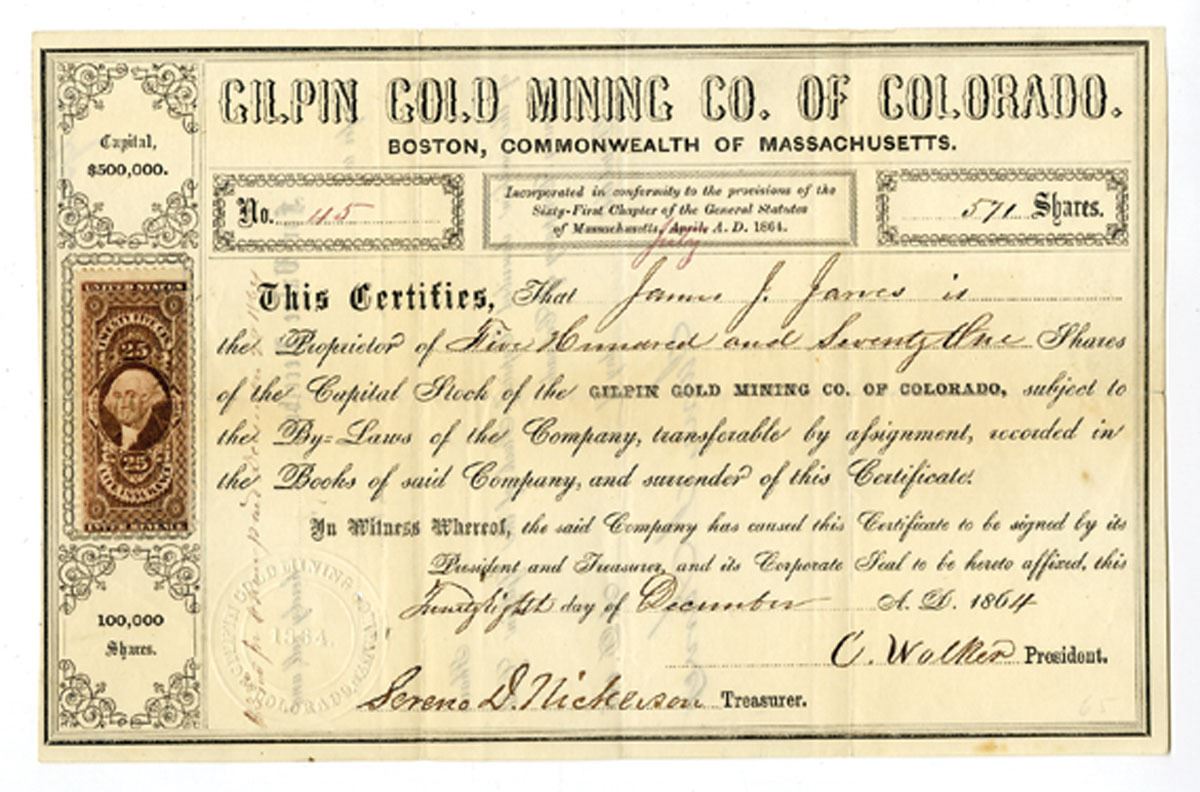 GILPIN GOLD MINING CO. OF COLORADO.
BOSTON, COMMONWEALTH OF MASSACHUSETTS.
Capital,
$500,000.
No. 45
Incorporated in conformity to the provisions of the
Sixty-First Chapter of the General Statutes
of Massachusetts, April, A. D. 1864.
July
571 Shares.
This Certifies, That James J. Janes is
the Proprietor of Five Hunnared and Seventy One Shares
of the Capital Stock of the GILPIN GOLD MINING CO. OF COLORADO, subject to
the By-Laws of the Company, transferable by assignment, recorded in
the Books of said Company, and surrender of this Certificate.
In Witness Whereof, the said Company has caused this Certificate to be signed by its
President and Treasurer, and its Corporate Seal to be hereto affixed, this
Twenty Eight day of December A. D. 1864
C. Walker President.
Sereno D. Nickerson Treasurer.
UNITED STATES
TWENTY FIVE CTS.
25
25
LIFE INSURANCE
UNITED STATES
100,000
Shares.
GILPIN GOLD MINING COMPANY
1864.
COLORADO
65